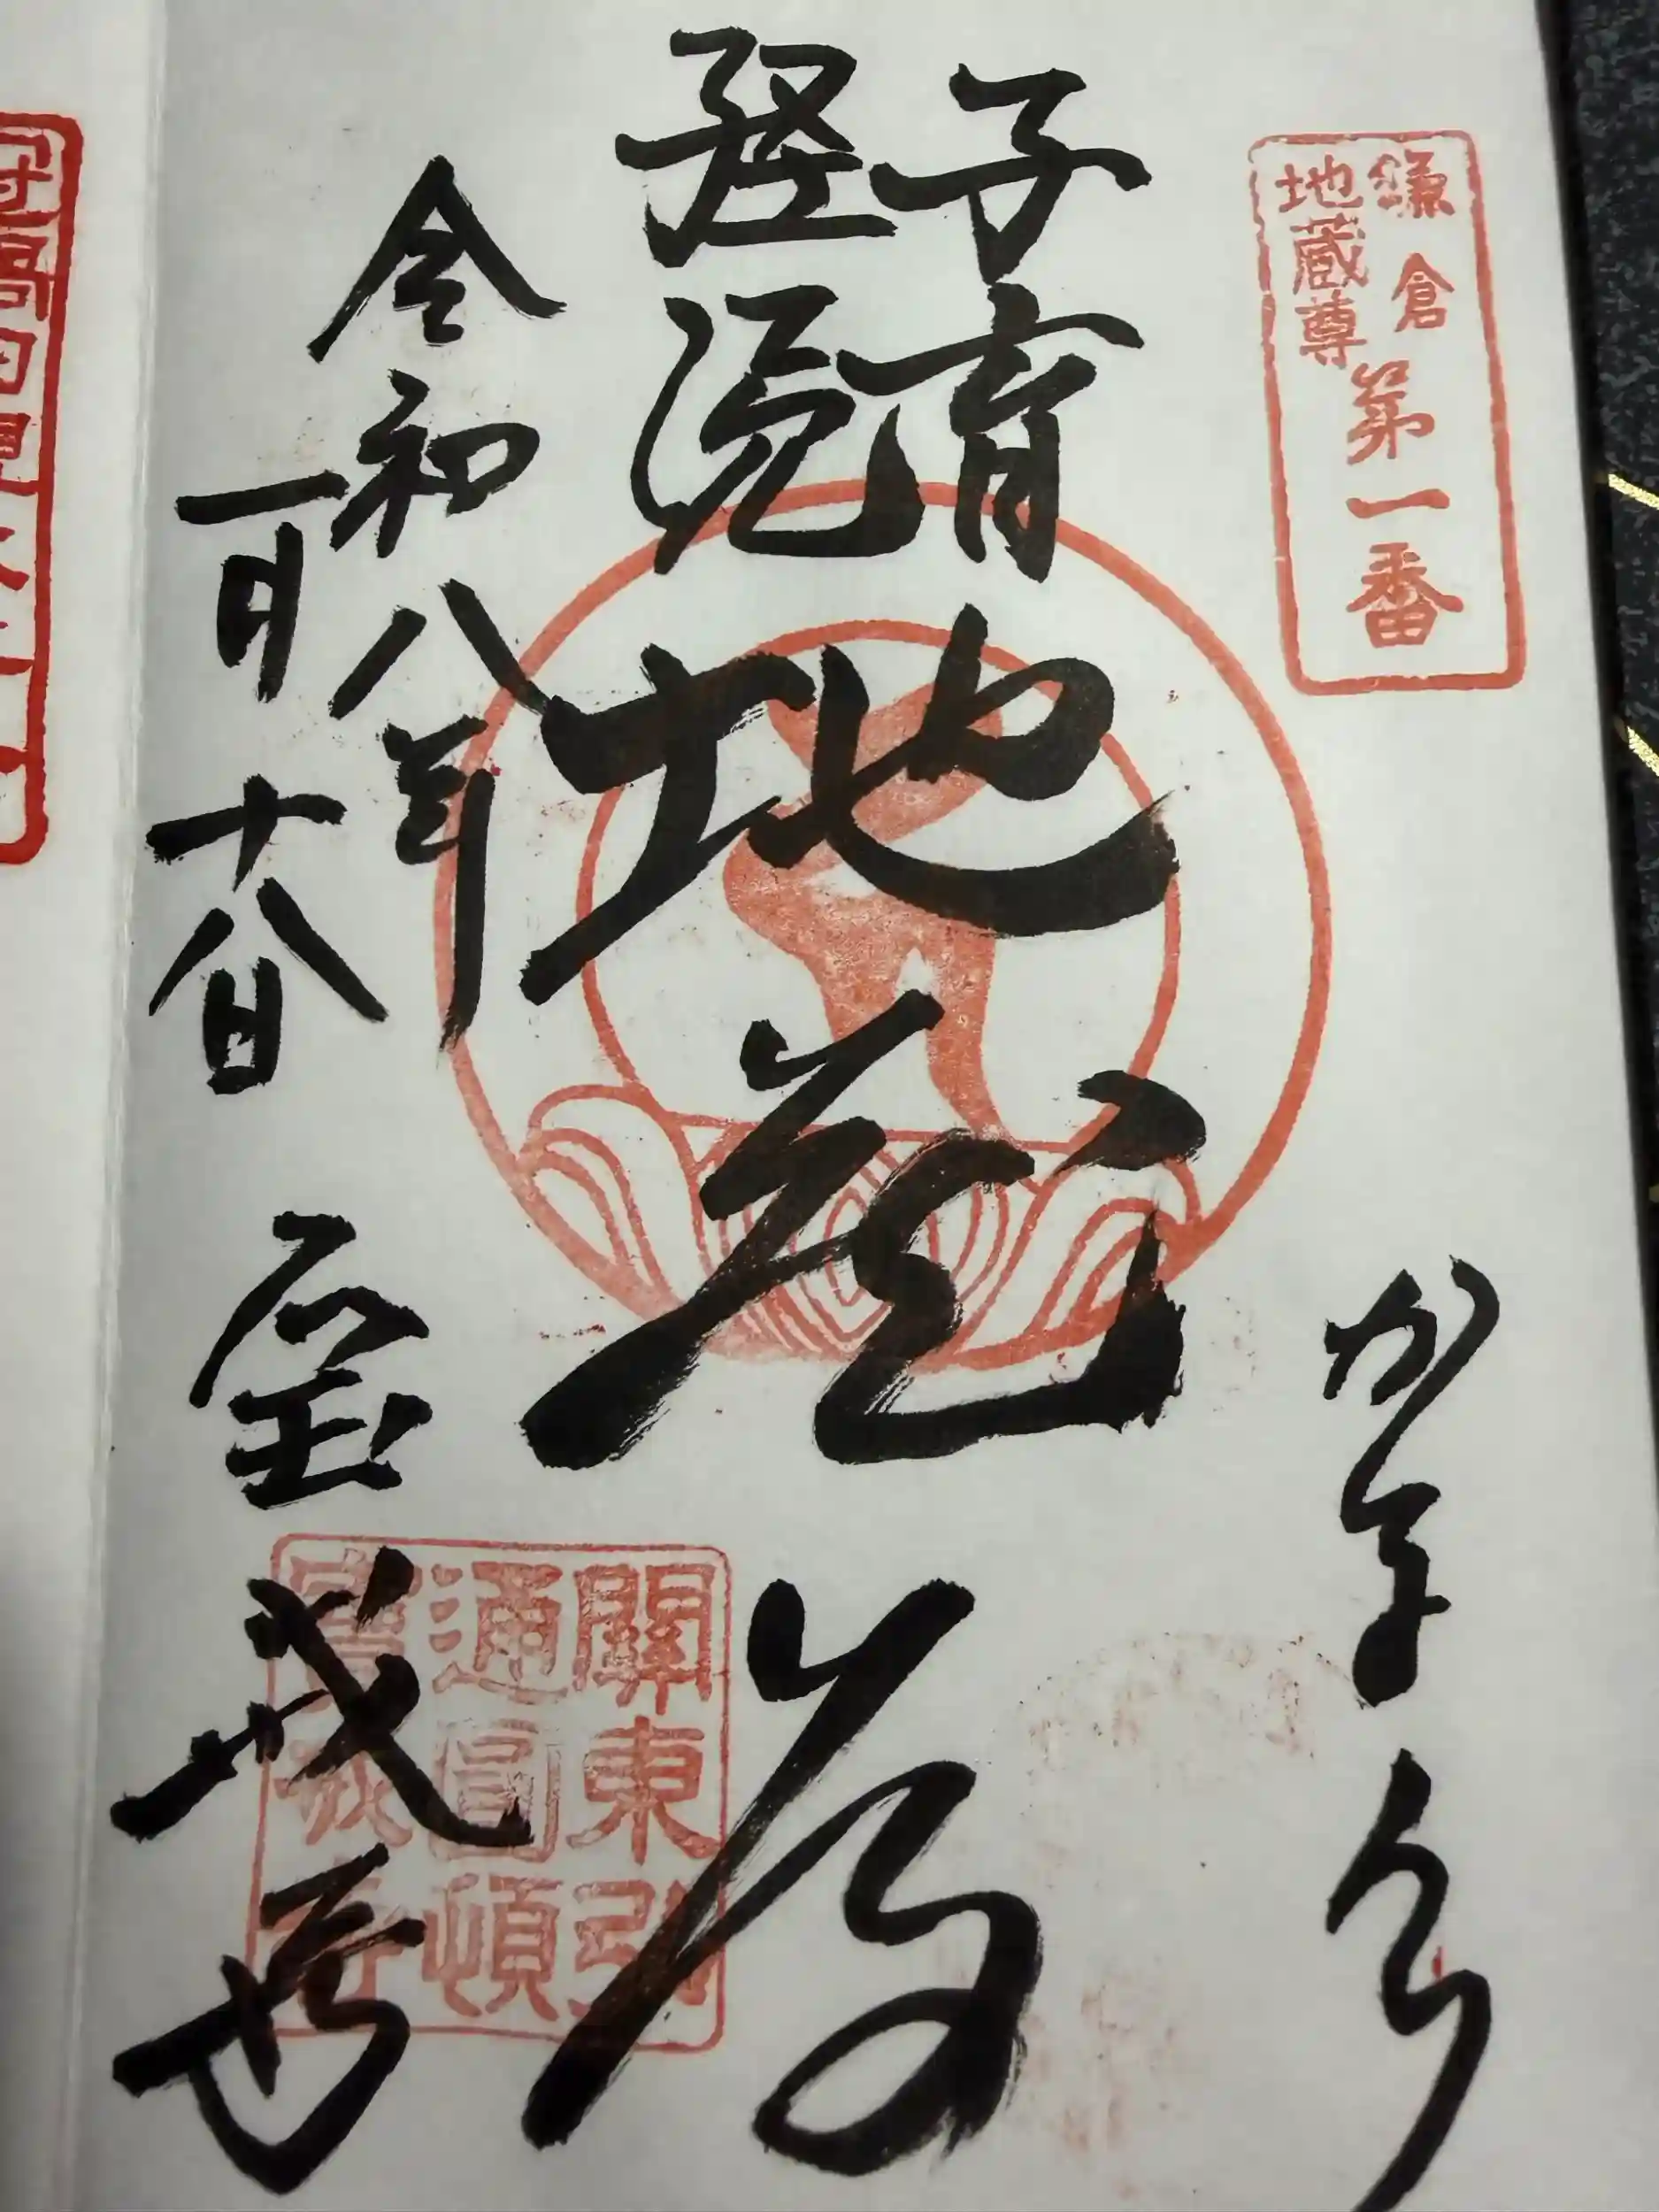 鎌倉
地蔵尊
第一番
かまくら
子育
経読
地蔵尊
令和八年
一月十八日
宝戒寺
關東弘
通圓頓
寶戒寺